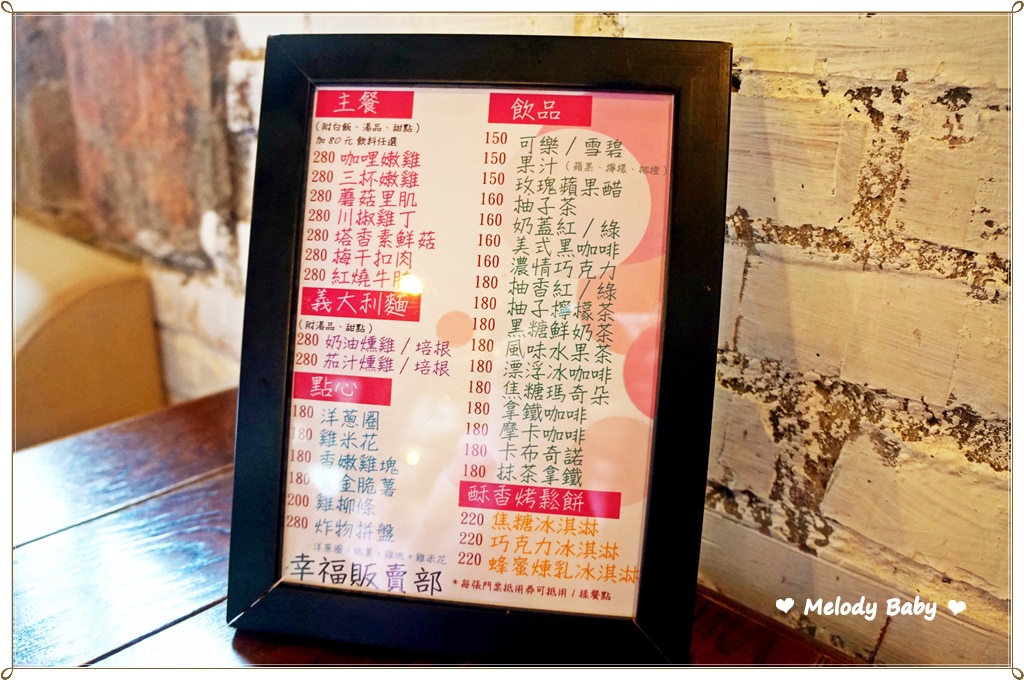 主餐
(附白飯、湯品、甜點)
加80元 飲料任選
280 咖哩嫩雞
280 三杯嫩雞
280 蘑菇里肌
280 川椒雞丁
280 塔香素鮮菇
280 梅干扣肉
280 紅燒牛腩
義大利麵
(附湯品、甜點)
280 奶油燻雞/培根
280 茄汁燻雞/培根
點心
180 洋蔥圈
180 雞米花
180 香嫩雞塊
180 金脆薯
200 雞柳條
280 炸物拼盤
洋蔥圈+脆薯+雞塊+雞米花
幸福販賣部
飲品
150 可樂/雪碧
150 果汁(蘋果、檸檬、柳橙)
150 玫瑰蘋果醋
160 柚子茶
160 奶蓋紅/綠
160 美式黑咖啡
160 濃情巧克力
180 柚香紅/綠
180 柚子檸檬茶
180 黑糖鮮奶茶
180 風味水果茶
180 漂浮冰咖啡
180 焦糖瑪奇朵
180 拿鐵咖啡
180 摩卡咖啡
180 卡布奇諾
180 抹茶拿鐵
酥香烤鬆餅
220 焦糖冰淇淋
220 巧克力冰淇淋
220 蜂蜜煉乳冰淇淋
*每張門票抵用券可抵用1樣餐點
❤ Melody Baby ❤